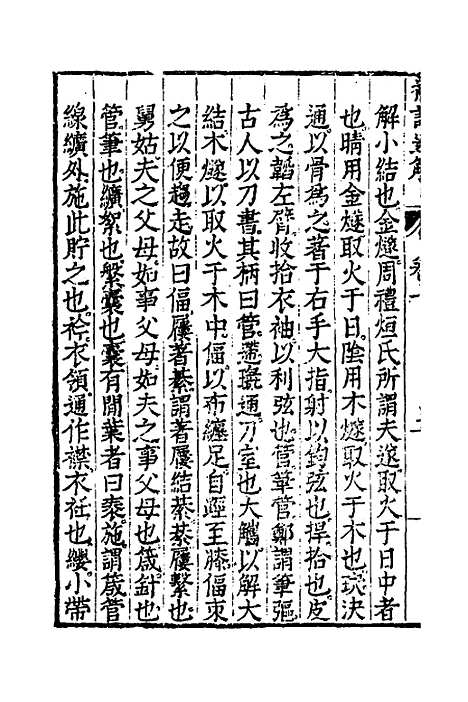 解小結也金燧周禮烜氏所謂夫遂取火于日中者
也晴用金燧取火于日陰用木燧取火于木也玦决
通以骨爲之著于右手大指射以鈎弦也捍拾也皮
爲之韜左臂收拾衣袖以利弦也管筆管鄭謂筆彄
古人以刀書其柄曰管遰璏通刀室也大觿以解大
結木燧以取火于木中偪以布纏足自踁至膝偪束
之以便趨走故曰偪屨著綦謂著屨結綦綦屨繫也
舅姑夫之父母如事父母如夫之事父母也箴針也
管筆也纊絮也縏囊也囊有閒葉者曰袠施謂箴管
線纊外施此貯之也衿衣領通作襟衣社也纓小帶